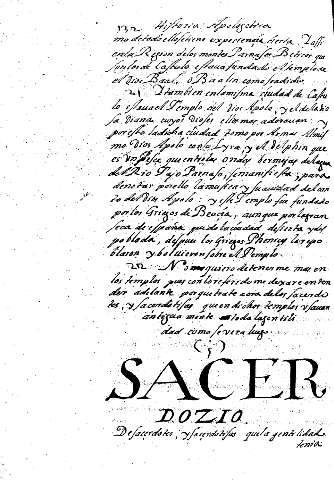 132 Historia Apologetica
mo de todo ello se tiene experiencia cierta. I assi
en la Region de los montes Parnasos, Beticos que
son los de Castulo, estava fundado el templo de
el Dios Baco, o Baal in como se a dicho.
21 Itambien en la misma ciudad de Castu
lo estava el Templo del Dios Apolo, y el de la Dio
sa Diana, cuyos dioses ellos mas adoravan: y
por esso la dicha ciudad tomo por Armas
mo Dios Apolo con la Lyra, y el Delphin que
es un pesce, que entre las ondas bermejas
del Rio Parnaso, se manifiesta, para
denotar por ello la musica y suavidad del can
to del Dios Apolo: y este Templo fue fundado
por los Griegos de Beocia, aunque por la gran
seca de españa, quedo la ciudad desierta y des
poblada, despues los Griegos Phenices la repo
blaron y bolvieron sobre el Templo.
22 No me quiero detener mas en
los templos pues con lo referido me dexare enten
der adelante porque trato aora de los sacerdo
tes, y sacerdotisas que en dichos templos usavan
antigua mente toda la gentili
dad como se vera luego.
SACER
DOZIO.
De sacerdotes, y sacerdotisas que la gentilidad
tenia